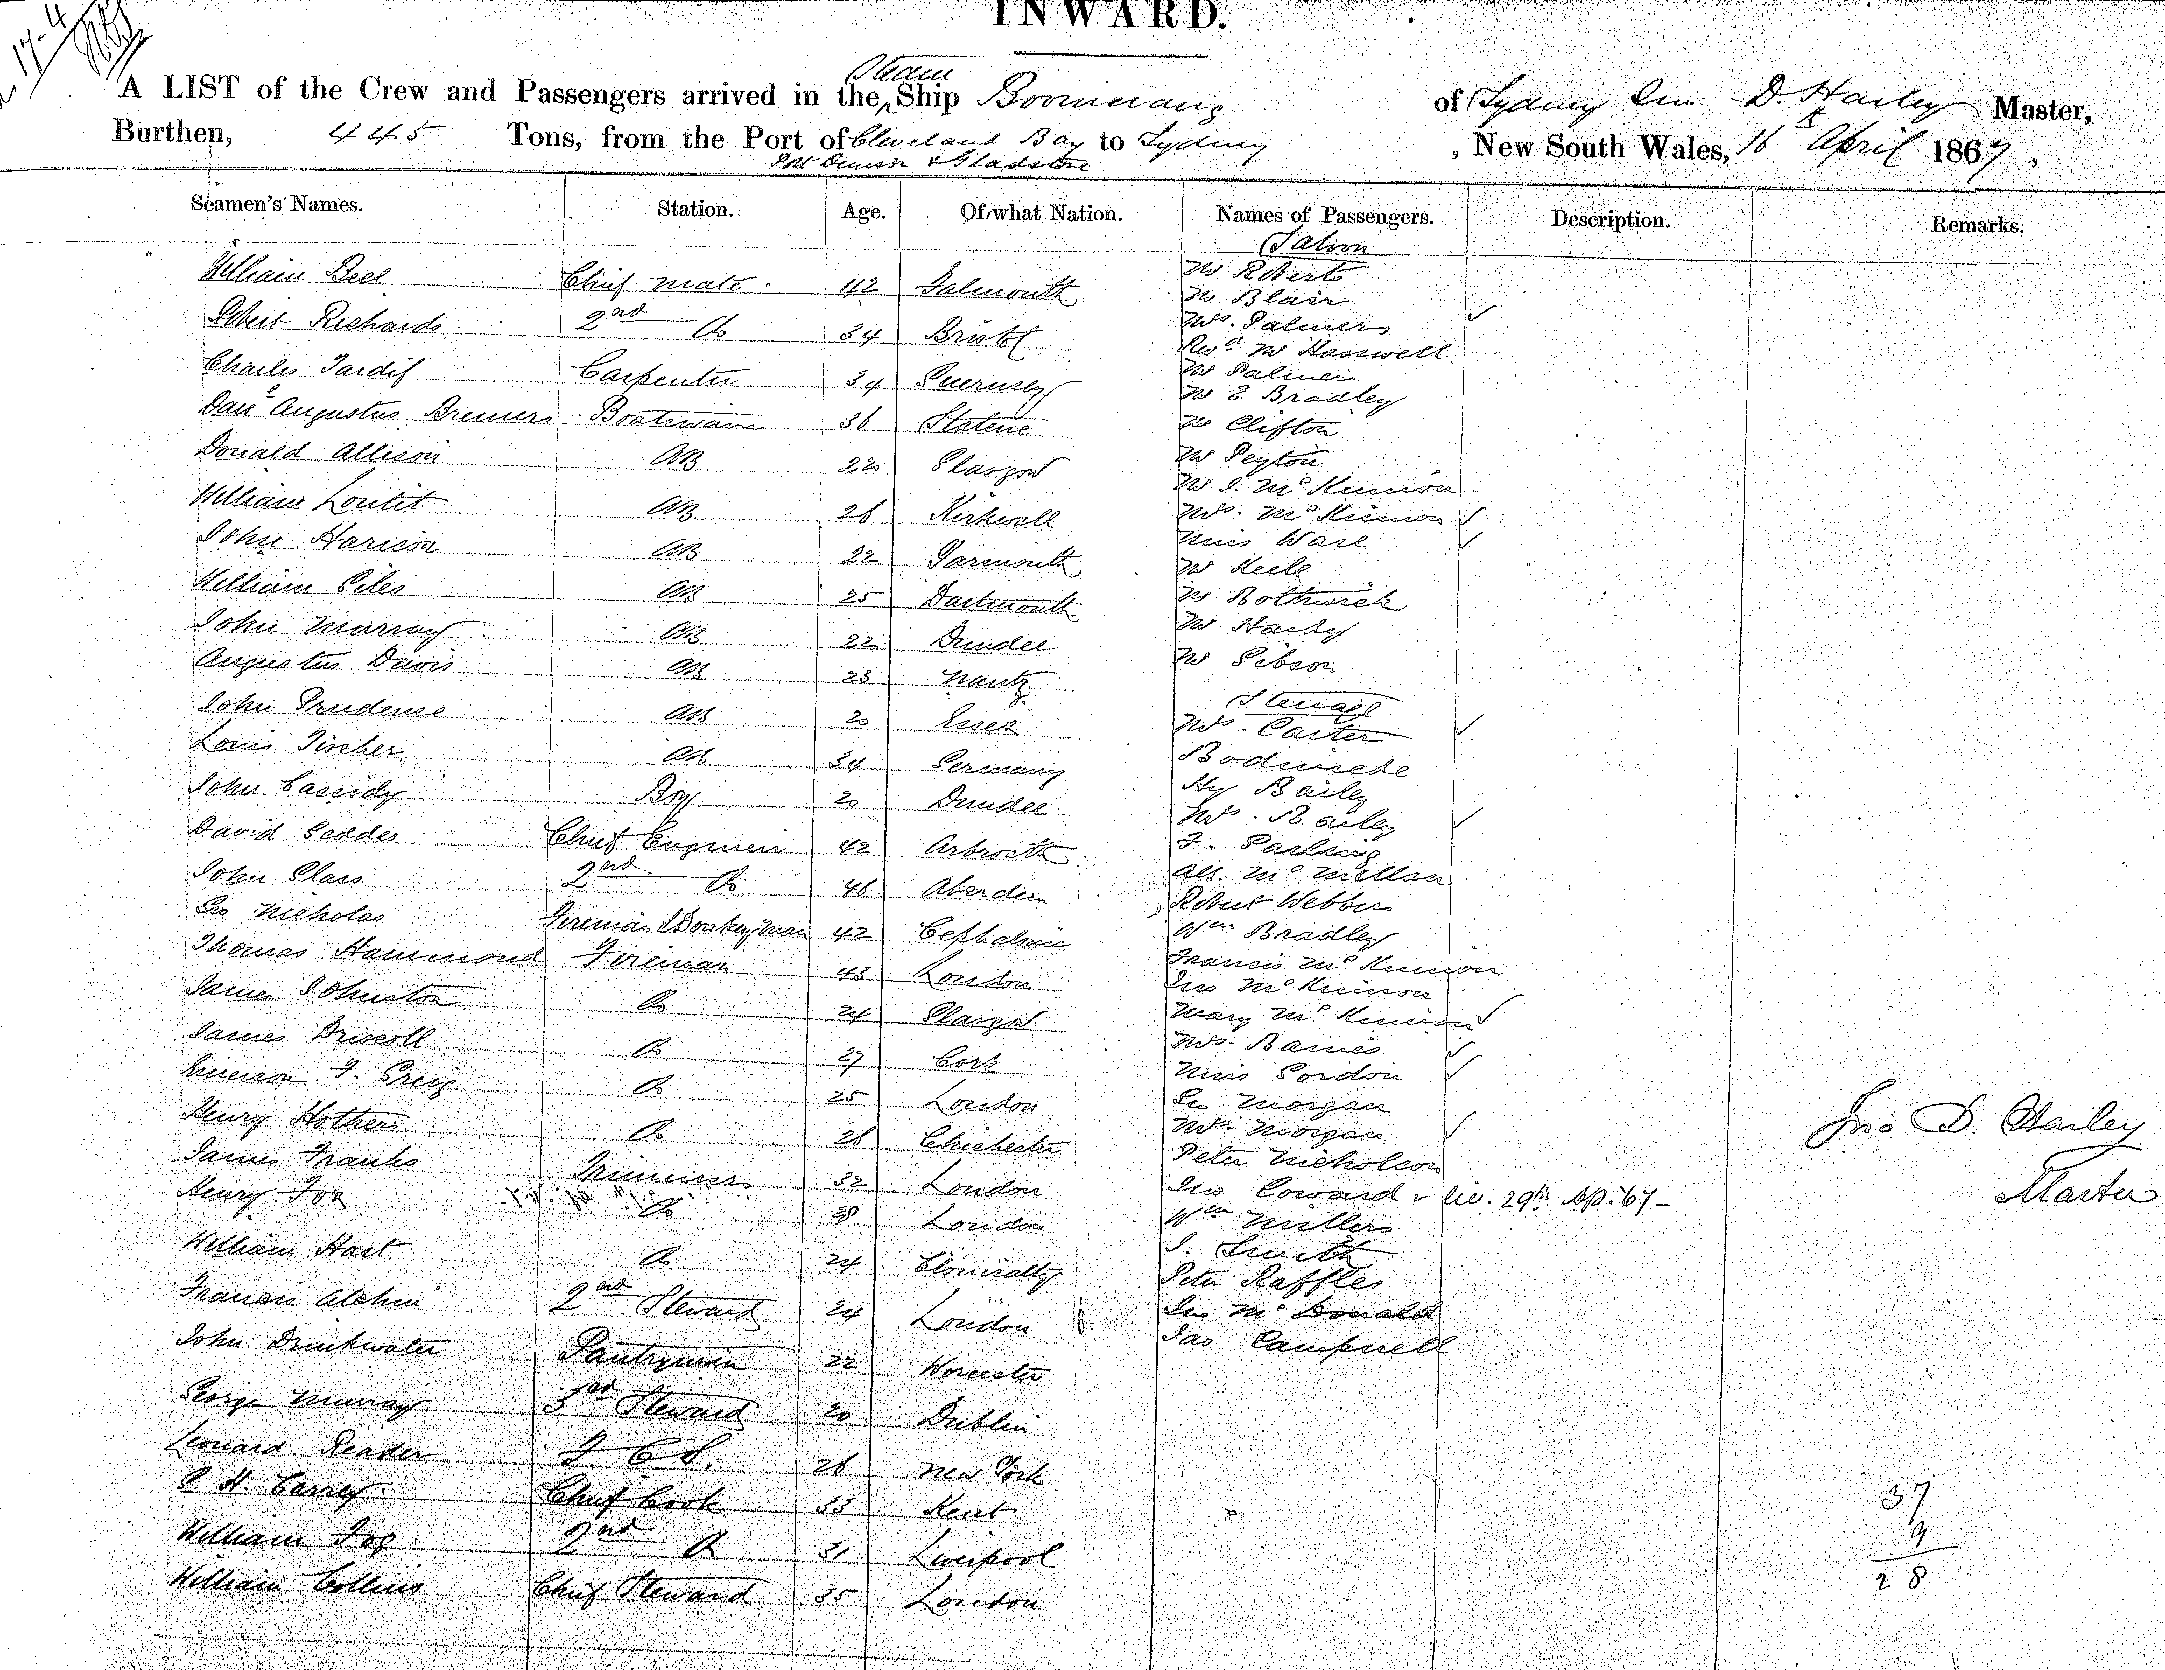 INWARD.
17-4
A LIST of the Crew and Passengers arrived in the Steam Ship Boomerang of Sydney D. Harley Master,
Burthen, 445 Tons, from the Port of Cleveland Bay to Sydney, New South Wales, 16 April 1867,
Port Denison & Gladstone
Seamen's Names. Station. Age. Of what Nation. Names of Passengers. Description. Remarks.
Saloon
William Bell Chief Mate 42 Falmouth Mr Roberts
Mr Blair
Robert Richards 2nd Do 34 Bristol Mrs. Palmer ✓
Revd. Mr Hasswell
Charles Tardif Carpenter 34 Guernsey Mr Palmer
Mr E Bradley
Augustus Bremers Boatswain 36 Mr Clifton
Donald Allison AB 22 Glasgow Mr Peyton
Mr J. McKinnon
William Loutit AB 26 Kirkwall Mrs. McKinnon ✓
John Harison AB 22 Yarmouth Miss Ware ✓
Mr Keele
William Giles AB 25 Dartmouth Mr Bothwick
John Murray AB 22 Dundee Mr Harley
Augustus Davis AB 23 Nantz Mr Gibson
Steerage
John Prudence AB 20 Mrs. Carter ✓
Louis Fincher AB 34 Germany
John Cassidy Boy 20 Dundee Hy Bailey
Mrs. Bailey ✓
David Geddes Chief Engineer 42 Arbroath
John Glass 2nd Do 46 Aberdeen Alx. McMillan
Geo Nicholas Fireman & Donkeyman 42 Robert Webber
Wm Bradley
Thomas Hammond Fireman 43 London Francis McKinnon
Jno McKinnon
James Johnston Do 24 Glasgow Mary McKinnon ✓
James Driscoll Do 27 Cork Mrs. Barnes ✓
Miss Gordon ✓
Do 25 London Geo Morgan
Henry Hothers Do 26 Chichester Mrs Morgan ✓
Peter Nicholson
James Franks Trimmer 32 London Jno Coward 29th Ap. 67 –
Henry Fox Do 28 London Wm Millers
William Hart Do 24 J. Smith
Peter Raffles
Francis Alchin 2nd Steward 24 London Jno McDonald
John Drinkwater Pantryman 22 Worcester Jas Campbell
George Murray 3rd Steward 20 Dublin
Leonard Reader F C S. 26 New York
Chief Cook 33 Kent
William Fox 2nd Do 31 Liverpool
William Collins Chief Steward 35 London
Jno D. Harley
Master
37
9
28